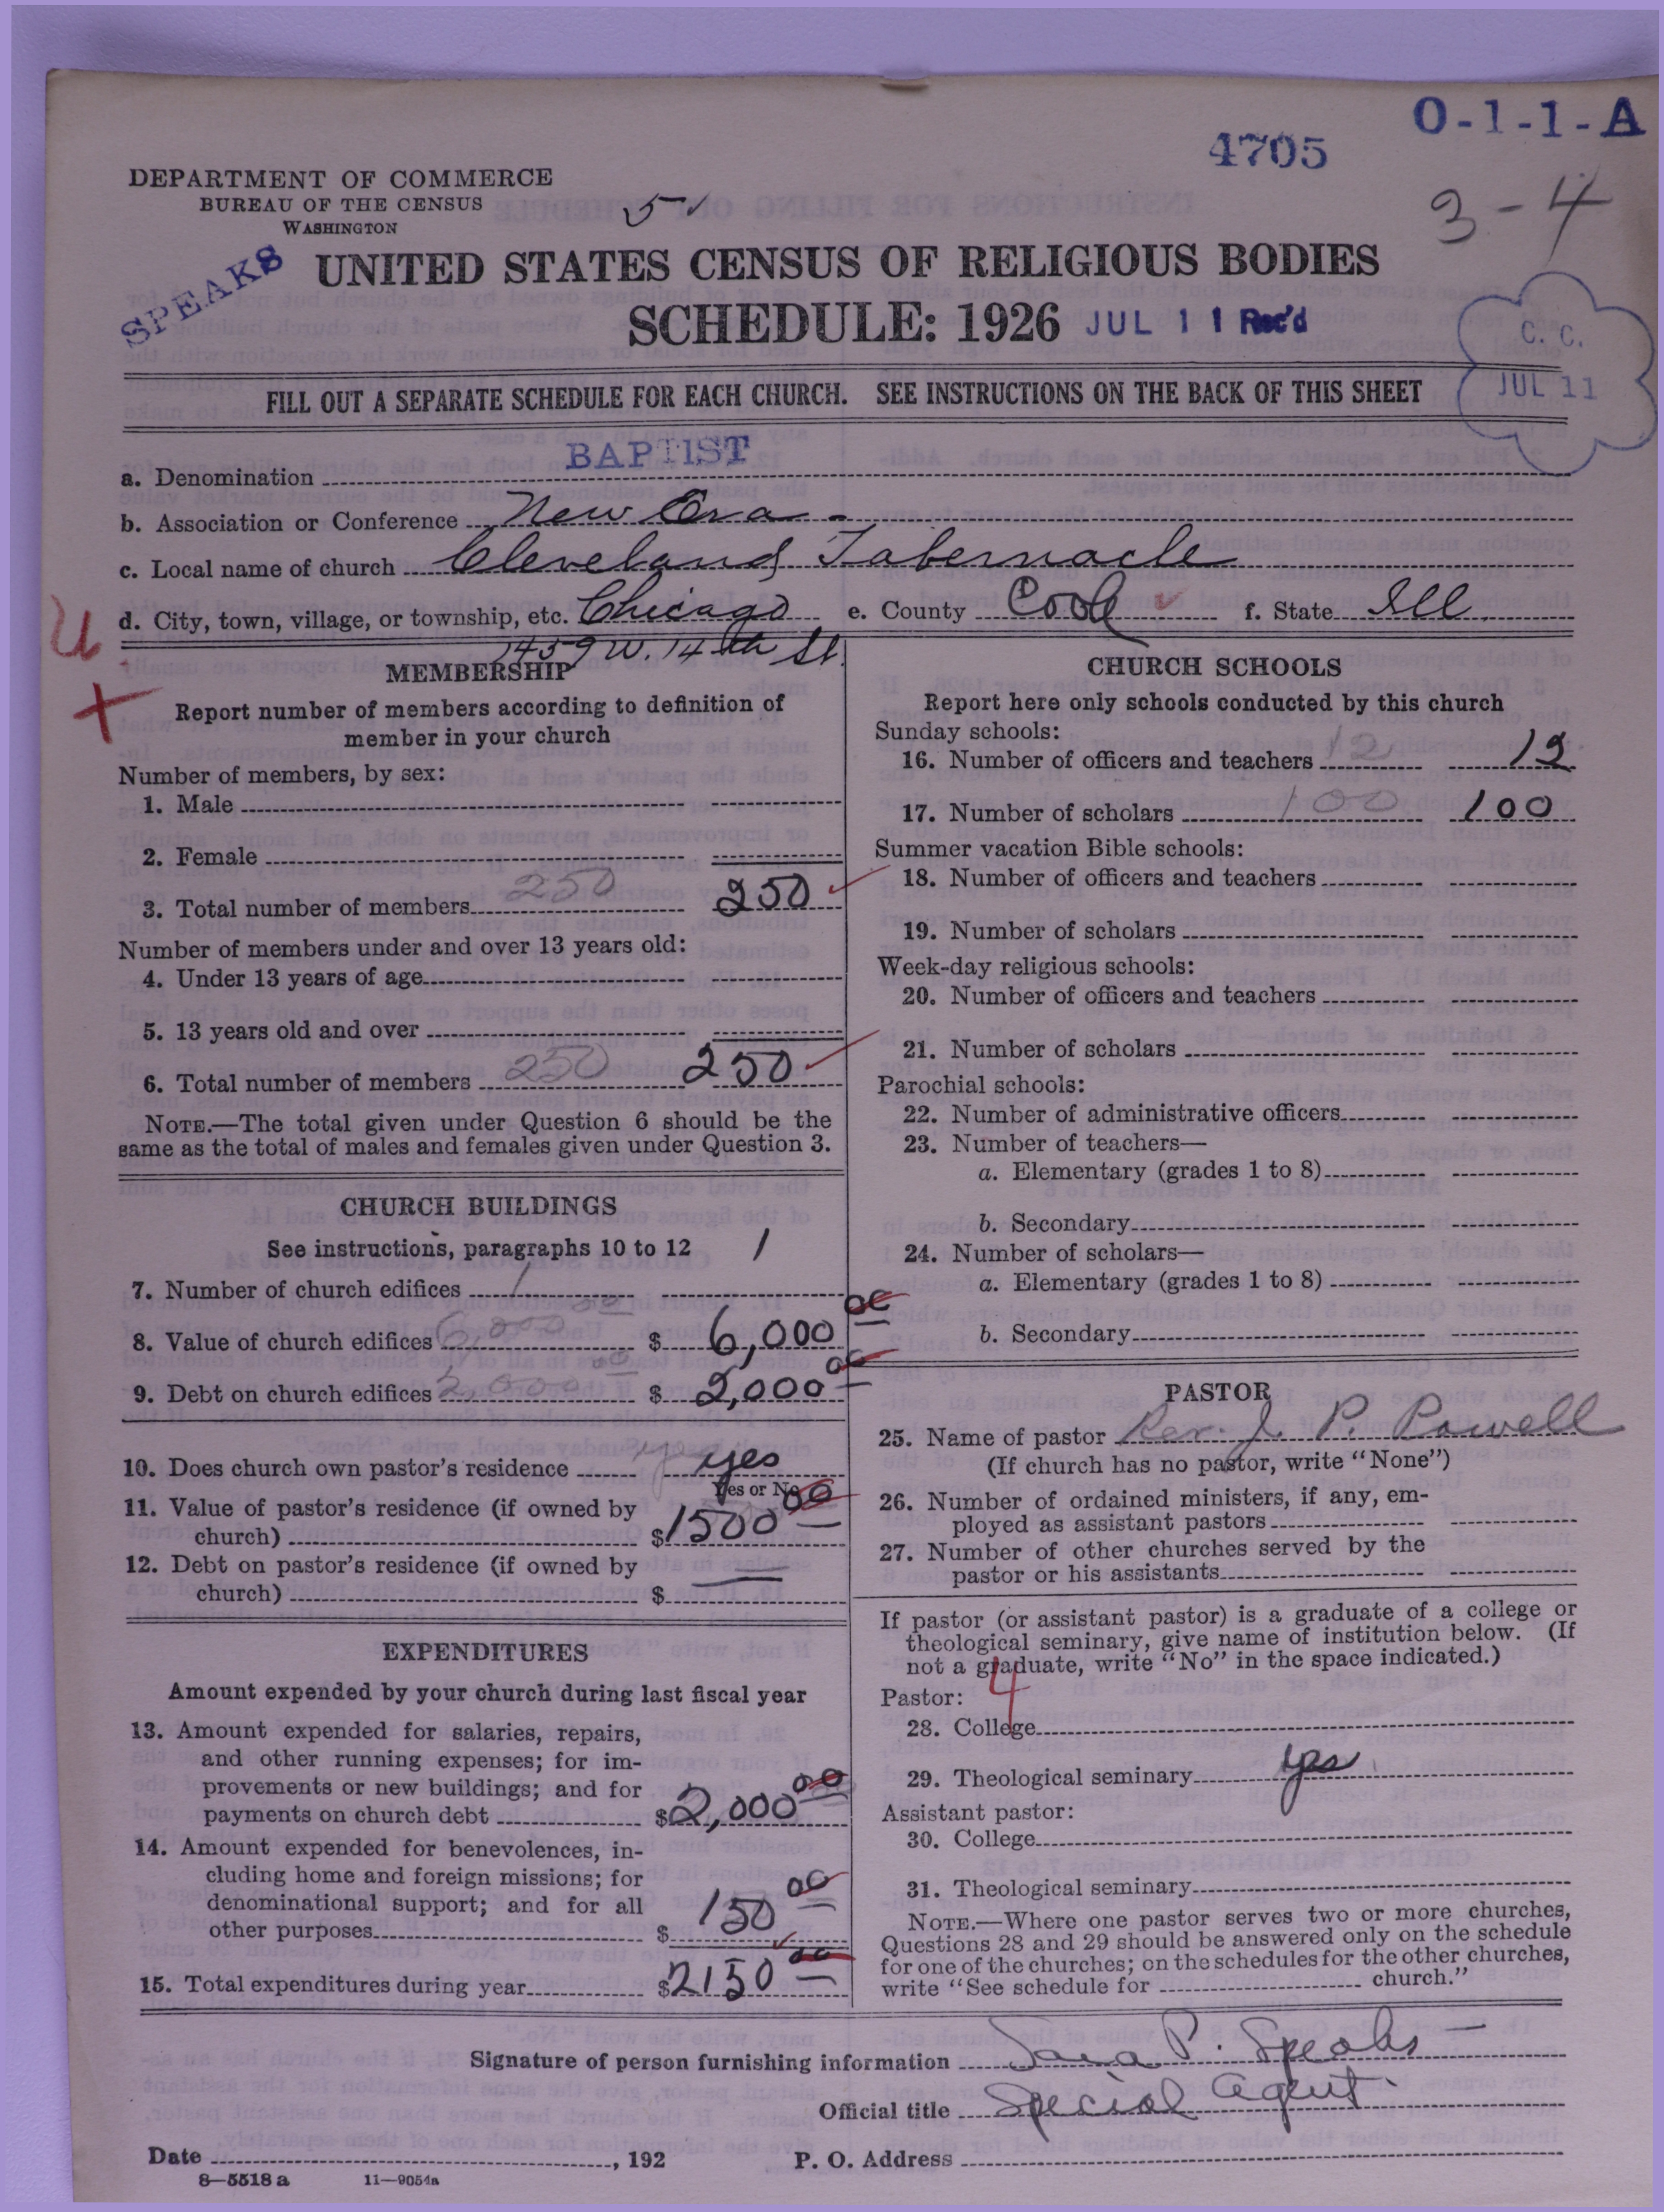 O-1-1-A
4705
3-4
DEPARTMENT OF COMMERCE
BUREAU OF THE CENSUS
WASHINGTON
5
SPEAKS
UNITED STATES CENSUS OF RELIGIOUS BODIES
SCHEDULE: 1926 JUL 11 Rec'd
C. C.
JUL 11
FILL OUT A SEPARATE SCHEDULE FOR EACH CHURCH. SEE INSTRUCTIONS ON THE BACK OF THIS SHEET
a. Denomination BAPTIST
b. Association or Conference New Era -
c. Local name of church Cleveland Tabernacle
d. City, town, village, or township, etc. Chicago e. County Cook f. State Ill.
1459 W. 14th St.
MEMBERSHIP
Report number of members according to definition of
member in your church
Number of members, by sex:
1. Male
2. Female
3. Total number of members 250 250
Number of members under and over 13 years old:
4. Under 13 years of age
5. 13 years old and over
6. Total number of members 250 250
NOTE.—The total given under Question 6 should be the
same as the total of males and females given under Question 3.
CHURCH BUILDINGS
See instructions, paragraphs 10 to 12 1
7. Number of church edifices 1
8. Value of church edifices 6,000 00 $ 6,000 00
9. Debt on church edifices 2,000 00 $ 2,000 00
10. Does church own pastor's residence yes yes
Yes or No
11. Value of pastor's residence (if owned by
church) $ 1500 00
12. Debt on pastor's residence (if owned by
church) $ —
EXPENDITURES
Amount expended by your church during last fiscal year
13. Amount expended for salaries, repairs,
and other running expenses; for im-
provements or new buildings; and for
payments on church debt $ 2,000 00
14. Amount expended for benevolences, in-
cluding home and foreign missions; for
denominational support; and for all
other purposes $ 150 00
15. Total expenditures during year $ 2150 00
CHURCH SCHOOLS
Report here only schools conducted by this church
Sunday schools:
16. Number of officers and teachers 12 12
17. Number of scholars 100 100
Summer vacation Bible schools:
18. Number of officers and teachers
19. Number of scholars
Week-day religious schools:
20. Number of officers and teachers
21. Number of scholars
Parochial schools:
22. Number of administrative officers
23. Number of teachers—
a. Elementary (grades 1 to 8)
b. Secondary
24. Number of scholars—
a. Elementary (grades 1 to 8)
b. Secondary
PASTOR
25. Name of pastor Rev. J. P. Powell
(If church has no pastor, write "None")
26. Number of ordained ministers, if any, em-
ployed as assistant pastors
27. Number of other churches served by the
pastor or his assistants
If pastor (or assistant pastor) is a graduate of a college or
theological seminary, give name of institution below. (If
not a graduate, write "No" in the space indicated.)
Pastor: 4
28. College
29. Theological seminary yes
Assistant pastor:
30. College
31. Theological seminary
NOTE.—Where one pastor serves two or more churches,
Questions 28 and 29 should be answered only on the schedule
for one of the churches; on the schedules for the other churches,
write "See schedule for church."
Signature of person furnishing information Sara P. Speaks
Official title Special Agent
Date , 192 P. O. Address
8—5518 a 11—9054a